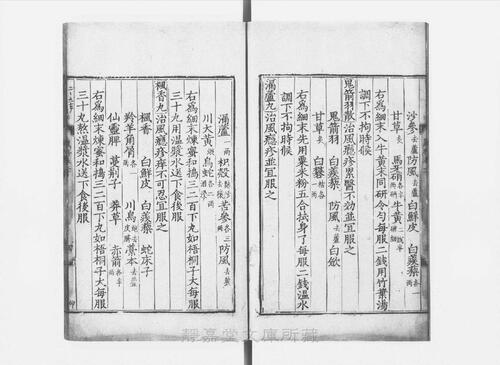 沙參去蘆 防風去蘆 白鮮皮 白蒺藜各一兩
甘草炙 馬牙硝各半兩 牛黃
右為細末入牛黃末同研令勻每服二錢用竹葉湯
調下不拘時候
鬼箭羽散治風癮疹累醫不効並宜服之
鬼箭羽 白蒺藜 防風去蘆 白斂
甘草炙 白礬枯各
右為細末先用粟米粉五合拭身了每服二錢溫水
調下不拘時候
漏蘆丸治風癮疹並宜服之
漏蘆一兩 枳殼麩炒去穰 苦參各三兩 防風去蘆
川大黃 烏蛇酒浸各二兩
右為細末煉蜜和擣三二百下丸如梧桐子大每服
三十丸用溫漿水送下食後服
楓香丸治風癮疹痒不可忍宜服之
楓香 白鮮皮 白蒺藜 蛇床子
羚羊角屑各一兩 川烏炮去皮臍 藁本去土
仙靈脾 蔓荊子 莽草 赤箭各半兩
右為細末煉蜜和擣三二百下丸如梧桐子大每服
三十丸熬溫漿水送下食後服
靜嘉堂文庫所藏